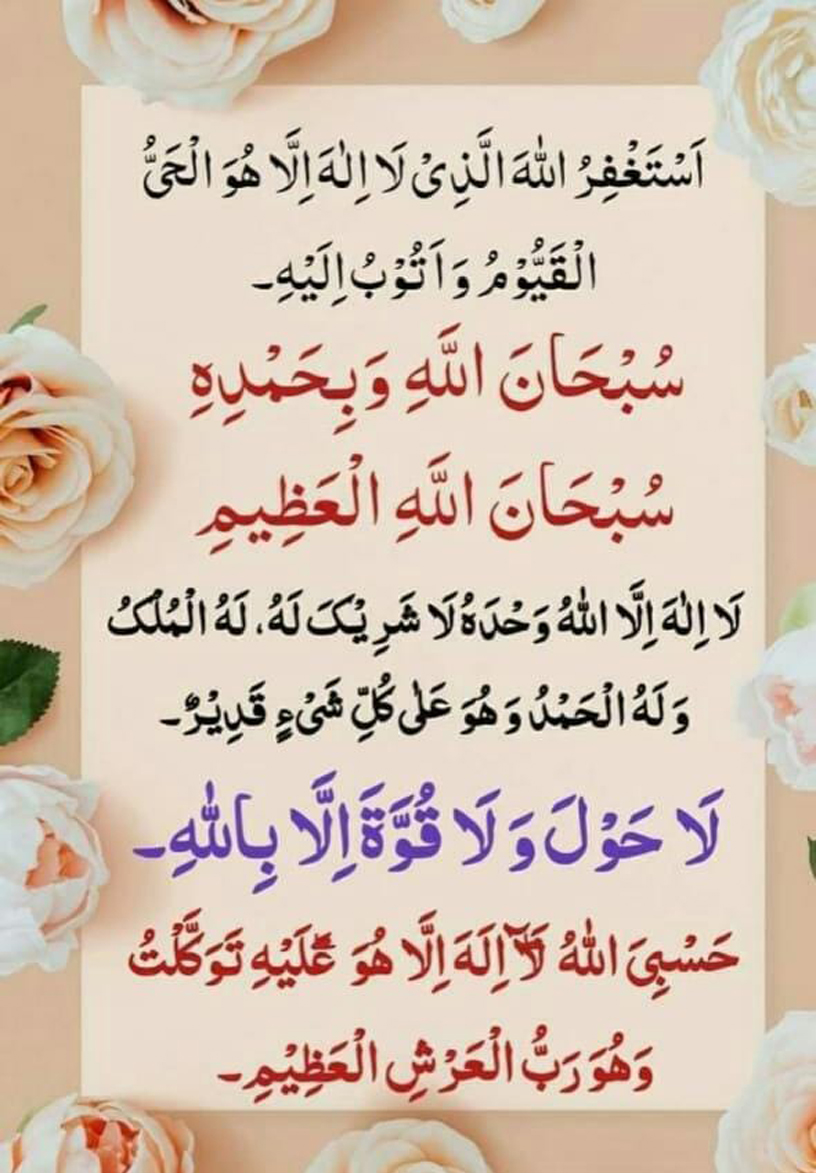 اَسْتَغْفِرُ اللهَ الَّذِیْ لَا اِلٰهَ اِلَّا هُوَ الْحَیُّ
الْقَیُّوْمُ وَ اَتُوْبُ اِلَیْهِ۔
سُبْحَانَ اللَّهِ وَبِحَمْدِهِ
سُبْحَانَ اللَّهِ الْعَظِيمِ
لَا اِلٰهَ اِلَّا اللهُ وَحْدَهُ لَا شَرِیْکَ لَهُ، لَهُ الْمُلْکُ
وَ لَهُ الْحَمْدُ وَ هُوَ عَلٰی کُلِّ شَیْءٍ قَدِیْرٌ۔
لَا حَوْلَ وَ لَا قُوَّةَ اِلَّا بِاللهِ۔
حَسْبِیَ اللهُ لَاۤ اِلَهَ اِلَّا هُوَ عَلَیْهِ تَوَکَّلْتُ
وَهُوَ رَبُّ الْعَرْشِ الْعَظِیْمِ۔